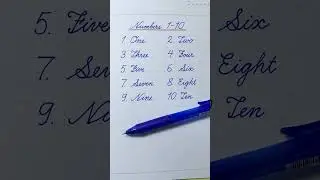 Numbers 1-10
1 One 2. Two
3. Three 4. Four
5. Five 6. Six
7. Seven 8. Eight
9. Nine 10. Ten
5. Five
7. Seven
9. Nine
Six
Eight
Ten